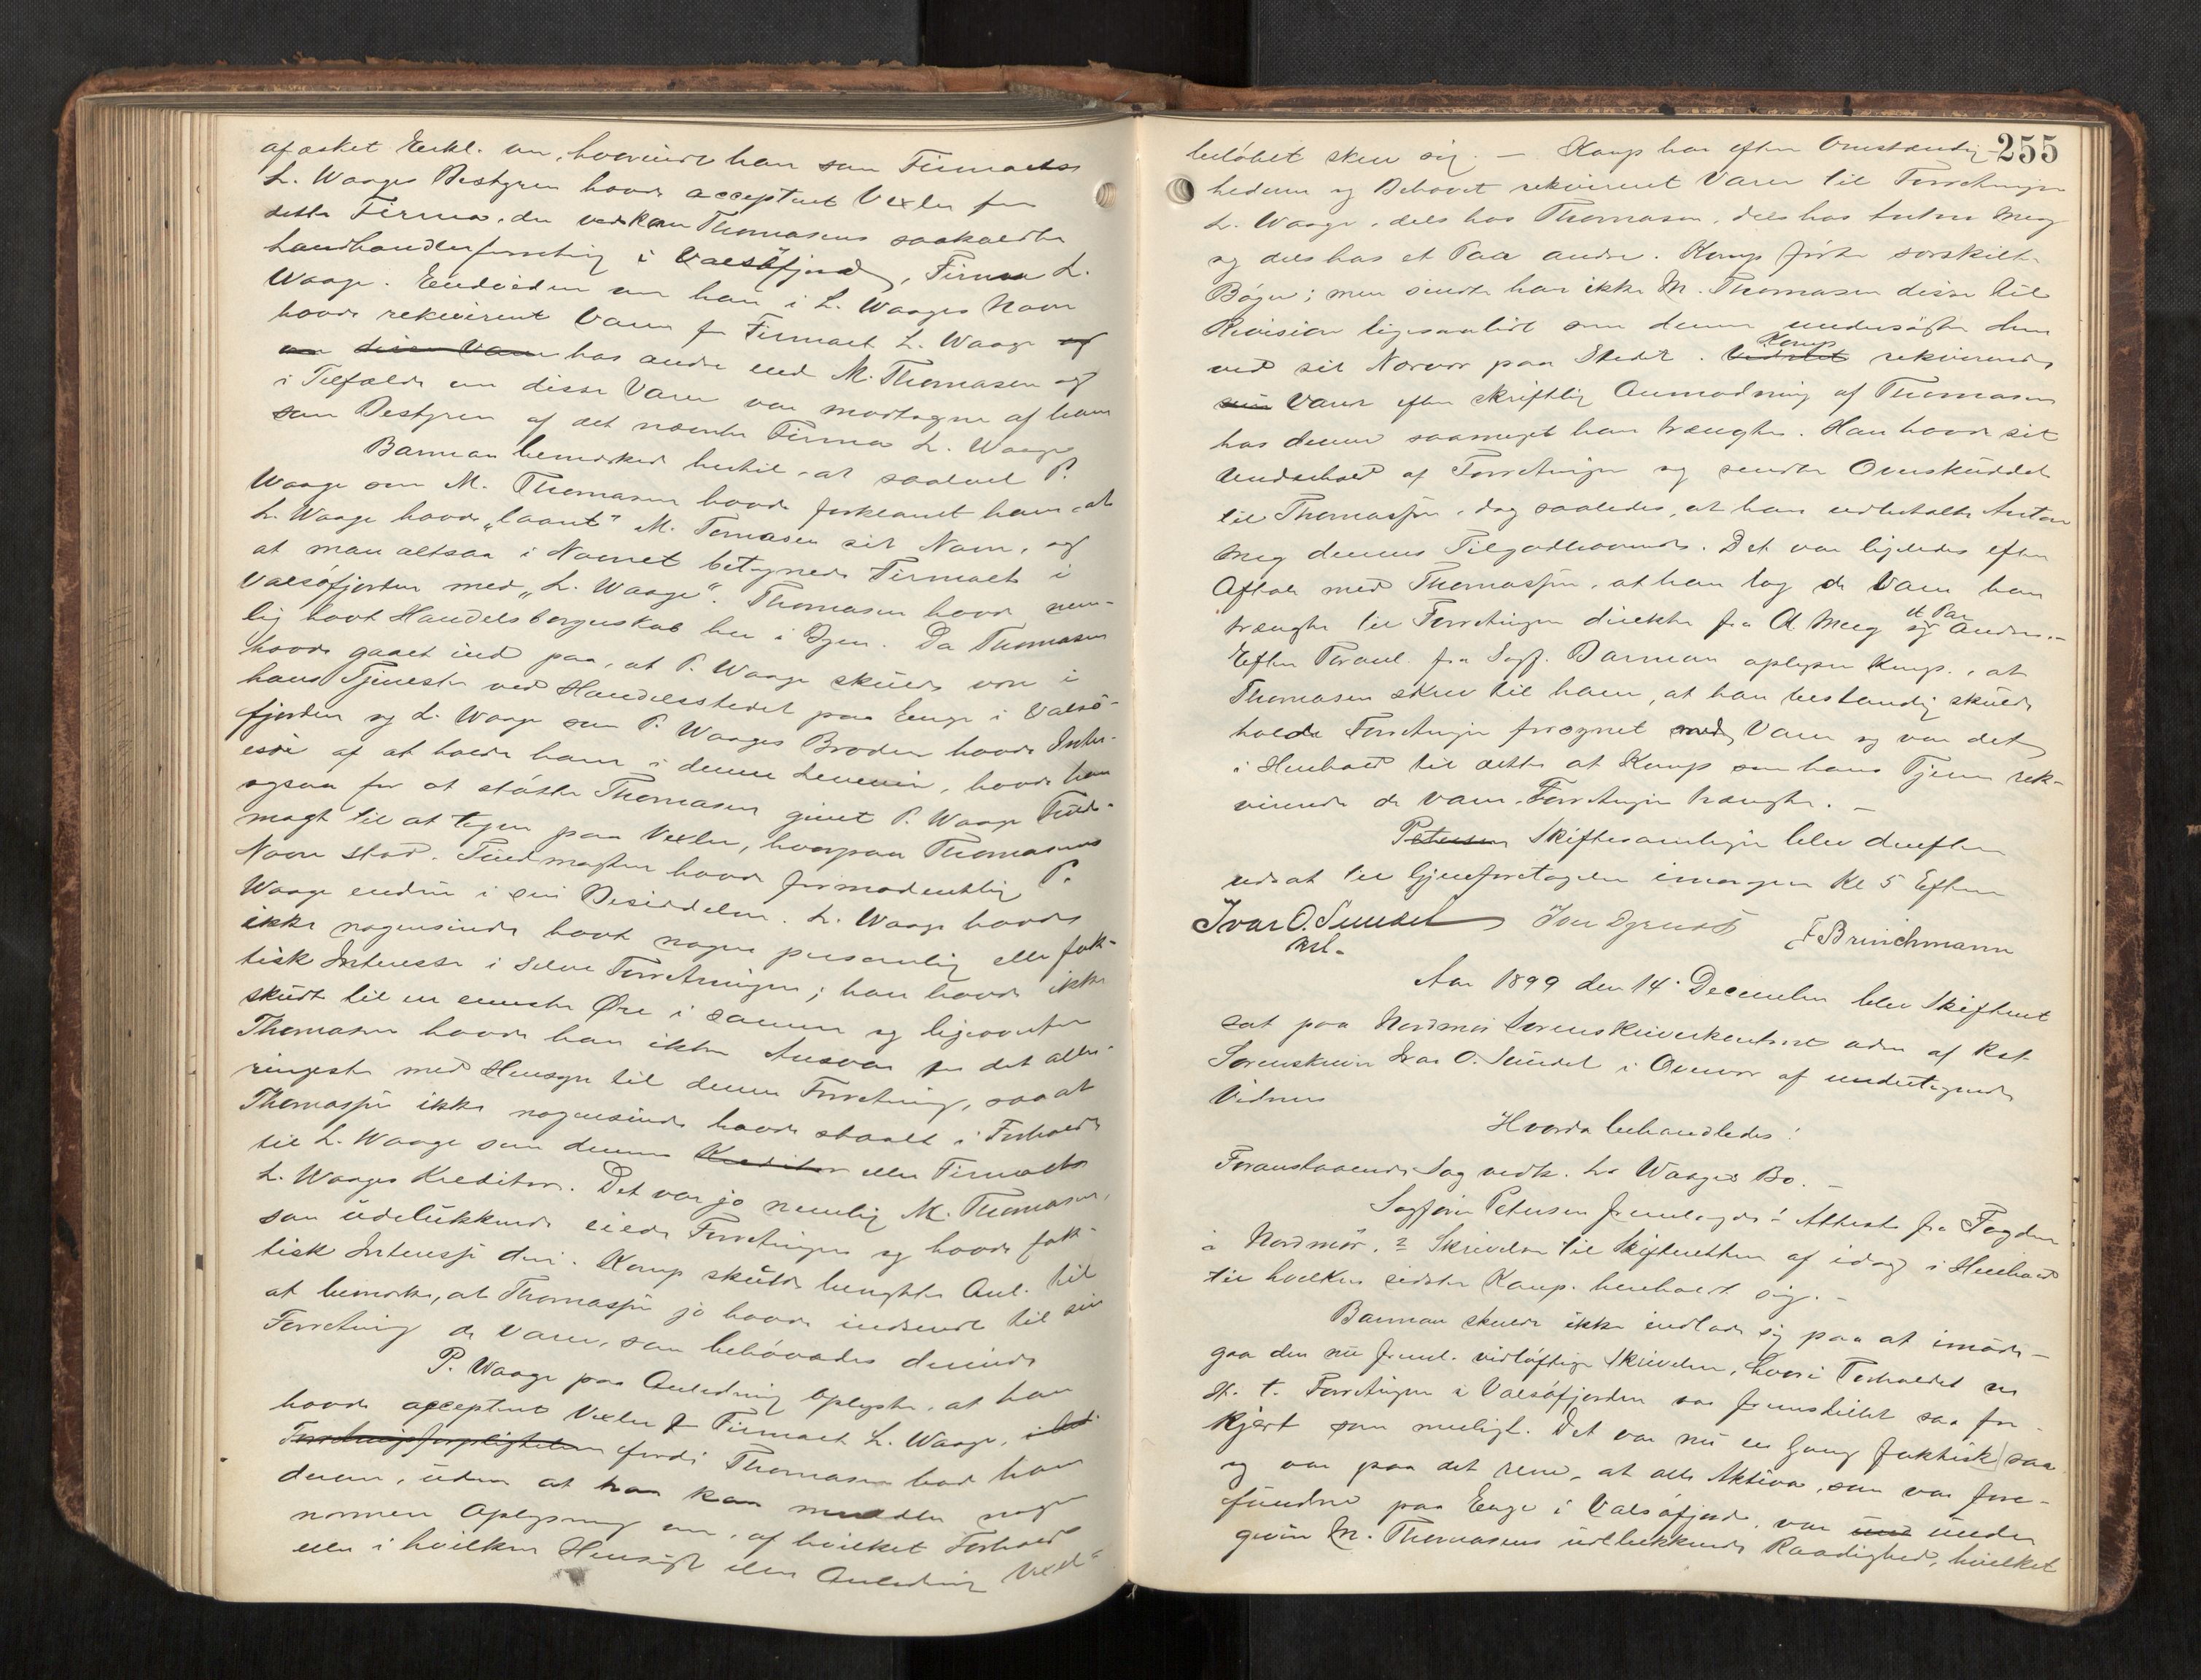 afæsket Erkl. om, hvorvidt han som Firmaets
L. Waages Bestyrer havde acceptert Vexler for
dette Firma, der vedkom Thomasens saakaldte
Landhandlerforretning i Valsøfjord, Firma L.
Waage. Endvidere om han i L. Waages Navn
havde rekvireret Varer for Firmaet L. Waage og
om disse Varer hos andre end M. Thomasen og
i Tilfælde om disse Varer var modtagne af ham
som Bestyrer af det nævnte Firma L. Waage
Barman bemærkede hertil, at saavel P.
Waage som M. Thomasen havde forklaret ham, at
L. Waage havde „laant" M. Tomasen sit Navn, og
at man altsaa i Navnet betegnede Firmaet i
Valsøfjorden med „L. Waage". Thomasen havde nem-
lig havt Handelsborgerskab her i Byen. Da Thomasen
havde gaaet ind paa, at P. Waage skulde være i
hans Tjeneste ved Handelsstedet paa Enge i Valsø-
fjorden og L. Waage som P. Waages Broder havde Inter-
esse af at holde ham i denne Levevei, havde han
ogsaa for at støtte Thomasen givet P. Waage Fuld-
magt til at tegne paa Vexler, hvorpaa Thomasens
Navn stod. Fuldmagten havde formodentlig P.
Waage endnu i sin Besiddelse. L. Waage havde
ikke nogensinde havt nogen personlig eller fak-
tisk Interesse i selve Forretningen; han havde ikke
skudt til en eneste Øre i samme og ligeoverfor
Thomasen havde han ikke Ansvar for det aller-
ringeste med Hensyn til denne Forretning, saa at
Thomasen ikke nogensinde havde staaet i Forhold
til L. Waage som dennes Kreditor eller Firmaets
L. Waages Kreditor. Det var jo nemlig M. Thomasen,
som udelukkende eiede Forretningen og havde fak-
tisk Interesse deri. Komp skulde benytte Anl. til
at bemærke, at Thomasen jo havde indsendt til sin
Forretning de Varer, som behøvedes derinde
P. Waage paa Anledning oplyste, at han
havde acceptert Vexler for Firmaet L. Waage, i det
Forretningsforpligtelsen fordi Thomasen bad ham
derom, uden at han kan meddele nogen
nærmere Oplysning om, af hvilket Forhold
eller i hvilken Hensigt eller Anledning Vexel-
255
beløbet skrev sig. — Komp har efter Omstændig-
hederne og Behovet rekvireret Varer til Forretningen
L. Waage, dels hos Thomasen, dels hos Anton Meg
og dels hos et Paa andre. Komp førte særskilte
Bøger; men sendte han ikke M. Thomasen disse til
Revision ligesaalidt som denne undersøgte dem
ved sit Nærvær paa Stedet. Komp rekvirerede
sin Varer efter skriftlig Anmodning af Thomasen
hos denne saameget han trængte. Han havde sit
Underhold af Forretningen og sendte Overskuddet
til Thomasen, dog saaledes, at han udbetalte Anton
Meg dennes Tilgodehavende. Det var ligeledes efter
Aftale med Thomasen, at han tog de Varer han
trængte til Forretningen direkte fra A Meg og et Par andre. —
Efter Foranl. fra Sagf. Barman oplyser Komp., at
Thomasen skrev til ham, at han bestandig skulde
holde Forretningen forsynet med Varer og var det
i Henhold til dette at Komp som hans Tjener rek-
virerede de Varer, Forretningen trængte. —
Petersen Skiftesamlingen blev derefter
udsat til Gjenforetagelse imorgen Kl 5 Efterm
Ivar O. Sundet
Kst.
F Brinchmann
Aar 1899 den 14 December blev Skifteret
sat paa Nordmør Sorenskriverkontor adm af Kst
Sorenskriver Ivar O. Sundet i Overvær af undertegnede
Vidner
Hvorda behandledes:
Foranstaaende Sag vedk. L. Waages Bo. —
Sagfører Petersen fremlagde 1 Attest fra Fogden
i Nordmør, 2 Skrivelse til Skifteretten af idag i Henhold
til hvilken sidste Komp. henholdt sig. —
Barman skulde ikke indlade sig paa at imøde-
gaa den nu freml. vidløftige Skrivelse, hvori Forholdet m
H. t. Forretningen i Valsøfjorden var fremstillet saa for
kjert som muligt. Det var nu en Gang faktisk saa
og var paa det rene, at alle Aktiva, som var fore-
fundne paa Enge i Valsøfjord, var und under
given M. Thomasens udelukkende Raadighed, hvilket